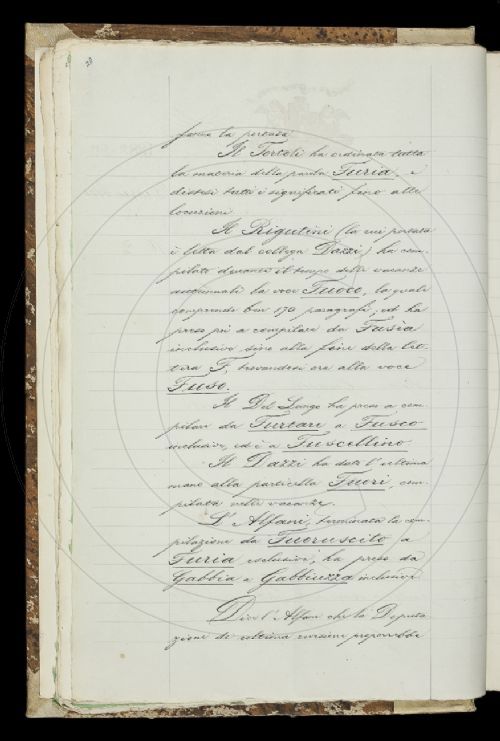 28
fosse la portata.
Il Tortoli ha ordinata tutta
la materia della parola Furia, e
distesi tutti i significati fino alle
locuzioni.
Il Rigutini (la cui portata
è letta dal collega Dazzi) ha com-
pilato durante il tempo delle vacanze
autunnali la voce Fuoco, la quale
comprende ben 170 paragrafi; ed ha
preso poi a compilare da Fusìa
inclusive sino alla fine della let-
tera F, trovandosi ora alla voce
Fuso.
Il Del Lungo ha preso a com-
pilare da Furtare a Fusco
inclusive, ed è a Fuscellino.
Il Dazzi ha dato l'ultima
mano alla particella Fuori, com-
pilata nelle vacanze.
L'Alfani, terminata la com-
pilazione da Fuoruscito a
Furia esclusive, ha preso da
Gabbia a Gabbiuzza inclusive.
Dice l'Alfani che la Deputa
zione di ultima revisione proporrebbe